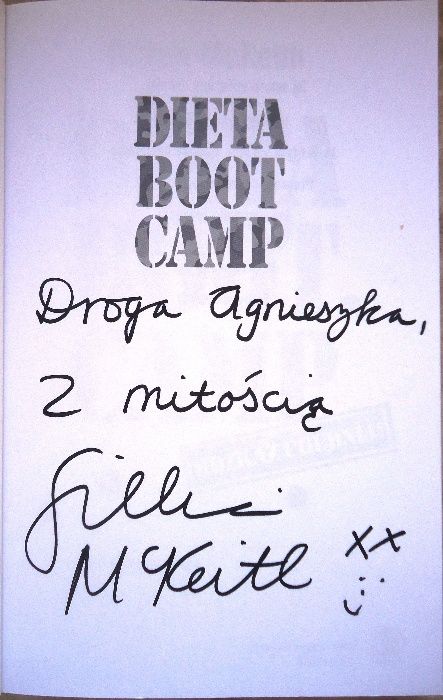 DIETA
BOOT
CAMP
Droga Agnieszka,
Z miłością
Gillian
McKeith xx